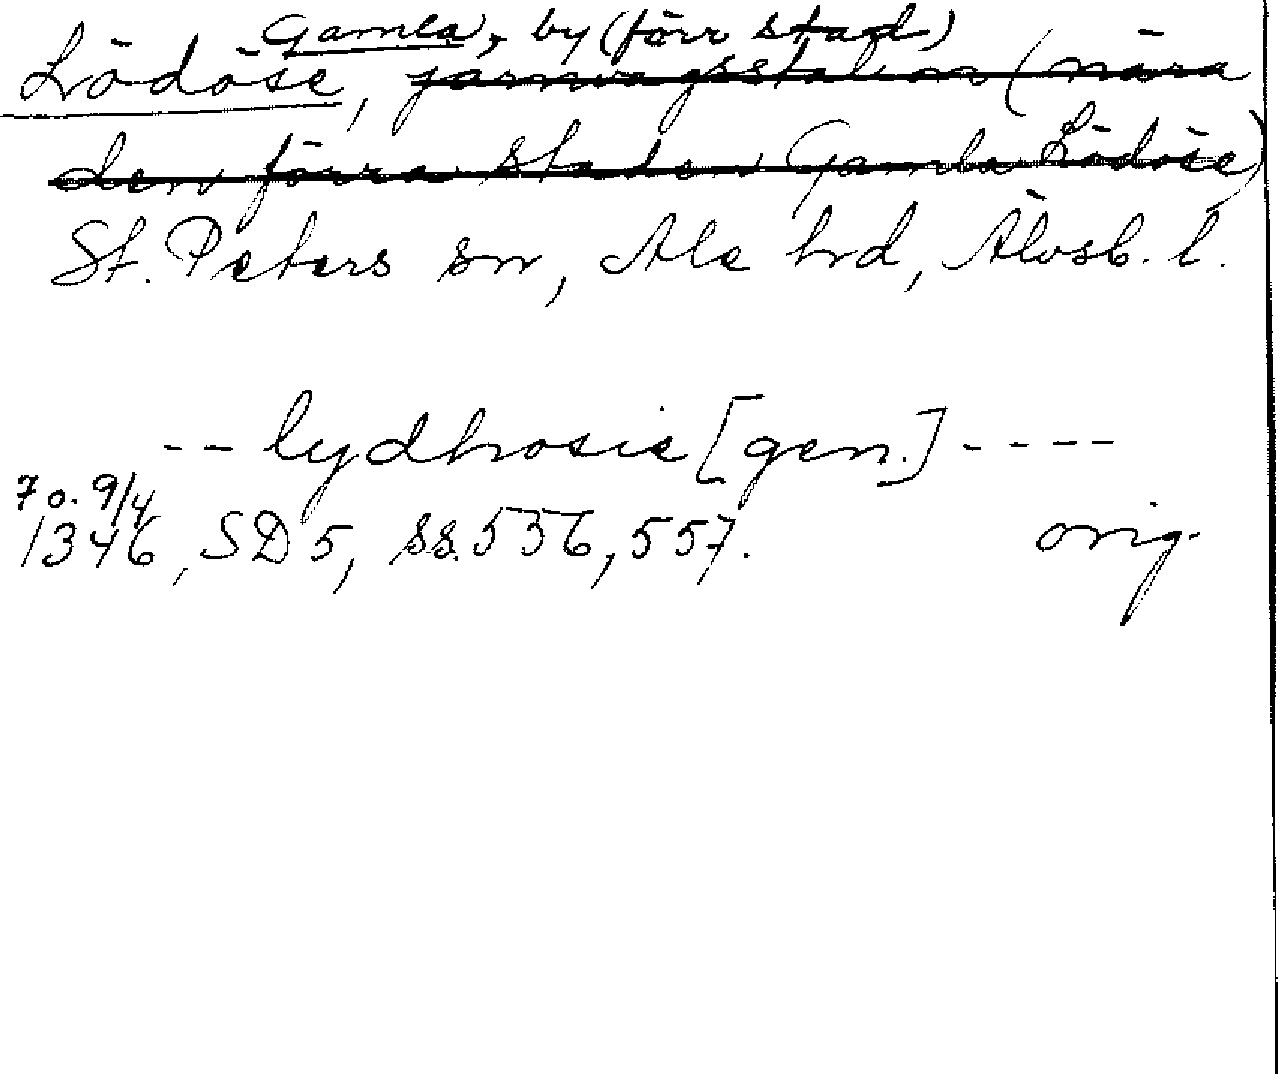 Gamla, by (förr stad)
Lödöse, järnvägsstation (nära
den förra staden Gamla Lödöse)
St. Peters sn, Ale hd, Älvsb. l.
-- lydhosie [gen.] ----
7 o. 9/4
1346, SD 5, ss. 536, 557. orig.